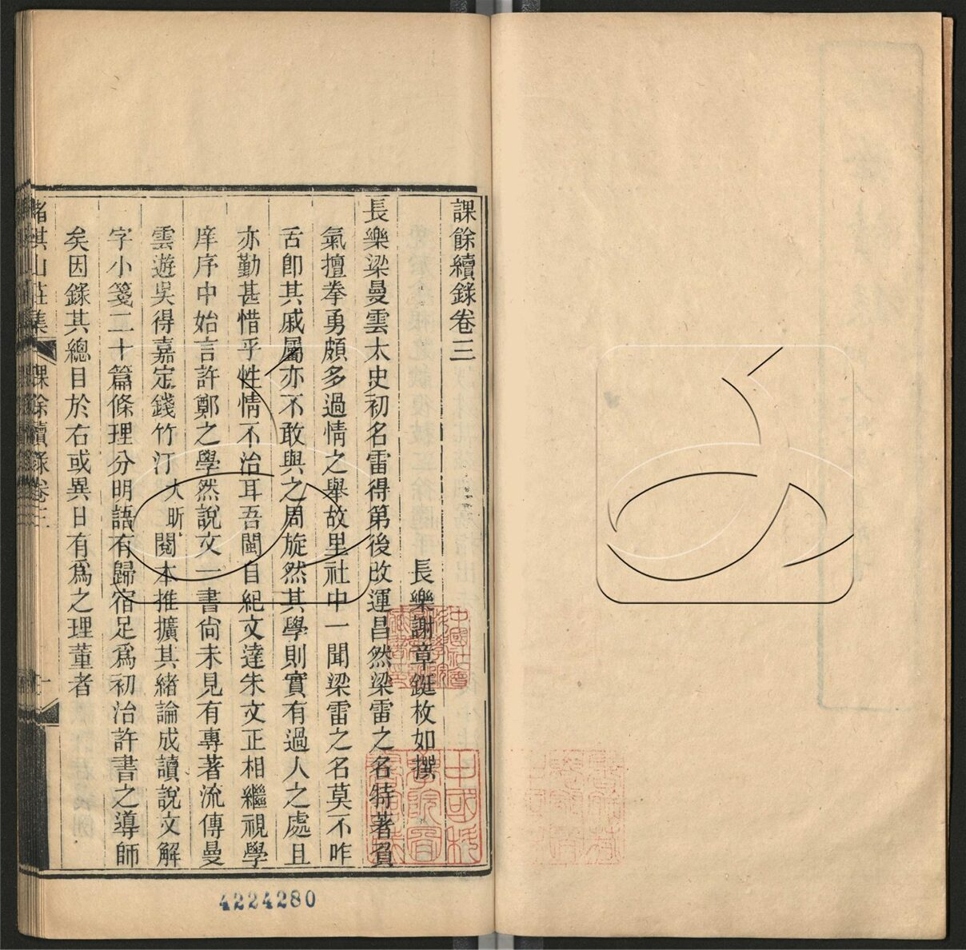 課餘續錄卷三
長樂謝章鋌枚如撰
長樂梁曼雲太史初名雷得第後改運昌然梁雷之名特著負
氣擅拳勇頗多過情之舉故里社中一聞梁雷之名莫不咋
舌卽其戚屬亦不敢與之周旋然其學則實有過人之處且
亦勤甚惜乎性情不治耳吾閩自紀文達朱文正相繼視學
庠序中始言許鄭之學然說文一書尙未見有專著流傳曼
雲遊吳得嘉定錢竹汀大昕閱本推擴其緒論成讀說文解
字小箋二十篇條理分明語有歸宿足爲初治許書之導師
矣因錄其總目於右或異日有爲之理董者
賭棋山莊集 課餘續錄卷三 一
4224280